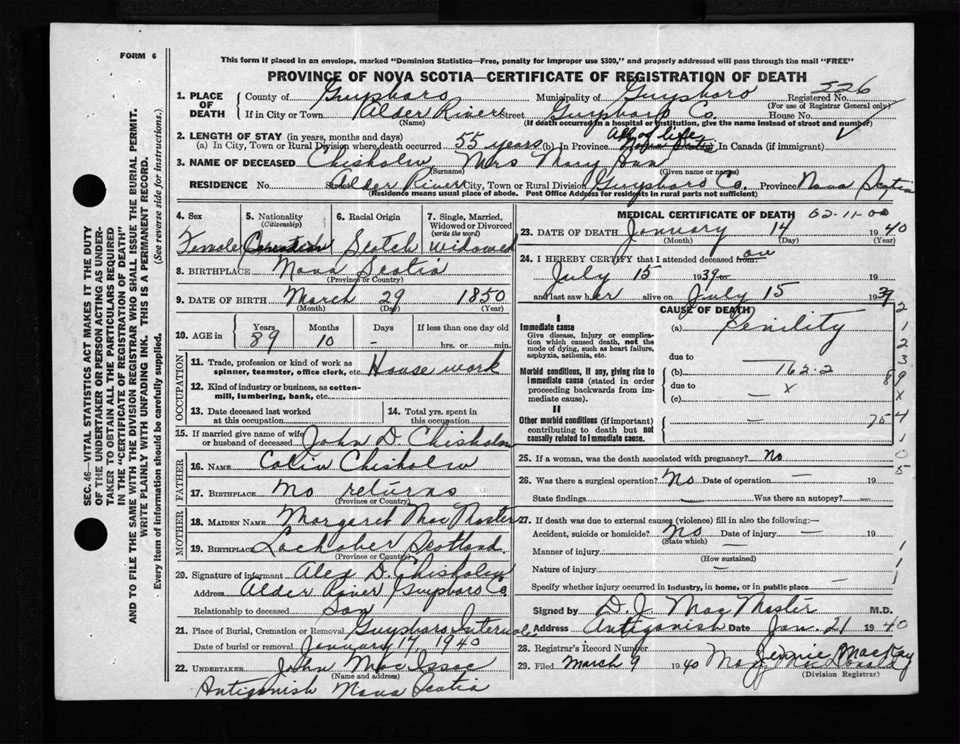 FORM 6
This form if placed in an envelope, marked "Dominion Statistics—Free, penalty for improper use $300," and properly addressed will pass through the mail "FREE"
PROVINCE OF NOVA SCOTIA—CERTIFICATE OF REGISTRATION OF DEATH
326
1. PLACE OF DEATH County of Guysboro Municipality of Guysboro Registered No.
(For use of Registrar General only)
If in City or Town Alder River Street Guysboro Co. House No.
(Name) (If death occurred in a hospital or institution, give the name instead of street and number)
2. LENGTH OF STAY (in years, months and days) All of life
(a) In City, Town or Rural Division where death occurred 55 years (b) In Province Nova Scotia In Canada (if immigrant)
3. NAME OF DECEASED Chisholm, Mrs Mary Ann
(Surname) (Given name or names)
RESIDENCE No. Street Alder River City, Town or Rural Division Guysboro Co. Province Nova Scotia
(Residence means usual place of abode. Post Office Address for residents in rural parts not sufficient)
4. Sex Female
5. Nationality (Citizenship) Canadian
6. Racial Origin Scotch
7. Single, Married, Widowed or Divorced (write the word) Widowed
8. BIRTHPLACE Nova Scotia
(Province or Country)
9. DATE OF BIRTH March 29 1850
(Month) (Day) (Year)
10. AGE in Years 89 Months 10 Days - If less than one day old hrs. or min.
OCCUPATION
11. Trade, profession or kind of work as spinner, teamster, office clerk, etc. House work
12. Kind of industry or business, as cotton-mill, lumbering, bank, etc.
13. Date deceased last worked at this occupation
14. Total yrs. spent in this occupation
15. If married give name of wife or husband of deceased John D. Chisholm
FATHER
16. NAME Colin Chisholm
17. BIRTHPLACE No returns
(Province or Country)
MOTHER
18. MAIDEN NAME Margaret MacMaster
19. BIRTHPLACE Lochaber Scotland
(Province or Country)
20. Signature of informant Alex D. Chisholm
Address Alder River Guysboro Co
Relationship to deceased Son
21. Place of Burial, Cremation or Removal Guysboro Intervale
Date of burial or removal January 17, 1940
22. UNDERTAKER John MacIsaac
(Name and address)
Antigonish Nova Scotia
MEDICAL CERTIFICATE OF DEATH 62-11-00
23. DATE OF DEATH January 14 1940
(Month) (Day) (Year)
24. I HEREBY CERTIFY that I attended deceased from on
July 15 1939 to 19
and last saw her alive on July 15 1939
CAUSE OF DEATH
I
Immediate cause
Give disease, injury or complication which caused death, not the mode of dying, such as heart failure, asphyxia, asthenia, etc.
(a) Senility
due to —
Morbid conditions, if any, giving rise to immediate cause (stated in order proceeding backwards from immediate cause).
(b) 162.2
due to x
(c) —
II
Other morbid conditions (if important) contributing to death but not causally related to immediate cause.
25. If a woman, was the death associated with pregnancy? No
26. Was there a surgical operation? No Date of operation — 19
State findings — Was there an autopsy? —
27. If death was due to external causes (violence) fill in also the following:—
Accident, suicide or homicide? No Date of injury — 19
(State which)
Manner of injury —
(How sustained)
Nature of injury —
Specify whether injury occurred in industry, in home, or in public place —
Signed by D. J. MacMaster M.D.
Address Antigonish Date Jan. 21 1940
28. Registrar's Record Number
Jennie MacKay
29. Filed March 9 1940 MacDonald
(Division Registrar)
SEC. 46—VITAL STATISTICS ACT MAKES IT THE DUTY
OF THE UNDERTAKER OR PERSON ACTING AS UNDER-
TAKER TO OBTAIN ALL THE PARTICULARS REQUIRED
IN THE "CERTIFICATE OF REGISTRATION OF DEATH"
AND TO FILE THE SAME WITH THE DIVISION REGISTRAR WHO SHALL ISSUE THE BURIAL PERMIT.
WRITE PLAINLY WITH UNFADING INK. THIS IS A PERMANENT RECORD.
Every item of information should be carefully supplied. (See reverse side for instructions.)